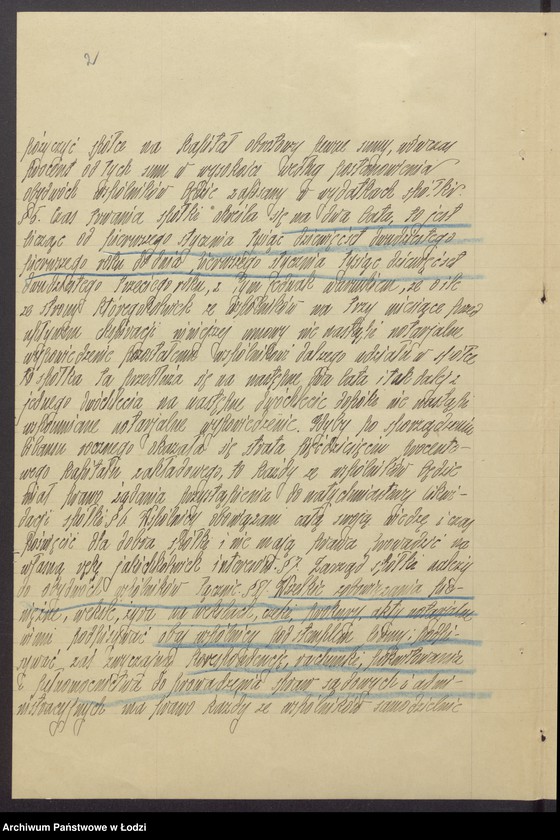 2
pożyczyć spółce na kapitał obrotowy pewne sumy, wówczas
procent od tych sum w wysokości według postanowienia
obydwóch wspólników będzie zapisany w wydatkach spółki
§ 5. Czas trwania spółki określa się na dwa lata, to jest
licząc od pierwszego stycznia tysiąc dziewięćset dwudziestego
pierwszego roku do dnia pierwszego stycznia tysiąc dziewięćset
dwudziestego trzeciego roku, z tym jednak warunkiem, że o ile
ze strony któregokolwiek ze wspólników na trzy miesiące przed
upływem niniejszej umowy nie nastąpi notarjalne
wypowiedzenie pozostałemu wspólnikowi dalszego udziału w spółce
to spółka ta przedłuża się na następne dwa lata i tak dalej z
jednego dwulecia na następne dwulecie dopóki nie nastąpi
wspomniane notarjalne wypowiedzenie. Gdyby po sporządzeniu
bilansu rocznego okazała się strata pięćdziesięciu procento-
wego kapitału zakładowego, to każdy ze wspólników będzie
miał prawo żądania przystąpienia do natychmiastowej likwi-
dacji spółki. § 6. Wspólnicy obowiązani całą swoją wiedzę i czas
poświęcić dla dobra spółki i nie mają prawa prowadzić na
własną rękę jakichkolwiek interesów. § 7. Zarząd spółki należy
do obydwóch wspólników łącznie. § 8. Wszelkie zobowiązania pod-
wyższe, weksle, żyra na wekslach, czeki, prokury, akty notarjalne
winni podpisywać obaj wspólnicy pod stemplem firmy; podpi-
sywać zaś zwyczajną korespondencję, rachunki, pokwitowania
i pełnomocnictwa do prowadzenia spraw sądowych i admi-
nistracyjnych ma prawo każdy ze wspólników samodzielnie
Archiwum Państwowe w Łodzi